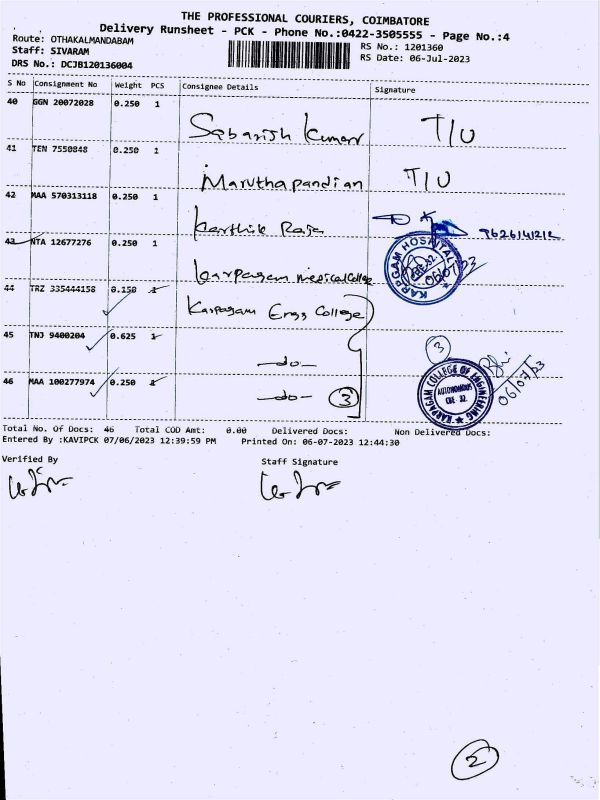 THE PROFESSIONAL COURIERS, COIMBATORE
Delivery Runsheet - PCK - Phone No.:0422-3505555 - Page No.:4
Route: OTHAKALMANDABAM
RS No.: 1201360
Staff: SIVARAM
RS Date: 06-Jul-2023
DRS No.: DCJB120136004
S No Consignment No Weight PCS Consignee Details Signature
40 GGN 20072028 0.250 1
Sabarish Kumar T/U
41 TEN 7550848 0.250 1
Maruthapandian T/U
42 MAA 570313118 0.250 1
Karthik Raja 9626141212
43 NTA 12677276 0.250 1
karpagam medical College
KARPAGAM HOSPITAL
CBE-32.
06/07/23
44 TRZ 335444158 0.150 1
Karpagam Engg College
45 TNJ 9400204 0.625 1
-do-
3
46 MAA 100277974 0.250 1
-do- 3
KARPAGAM COLLEGE OF ENGINEERING
AUTONOMOUS
CBE - 32.
06/07/23
Total No. Of Docs: 46 Total COD Amt: 0.00 Delivered Docs: Non Delivered Docs:
Entered By :KAVIPCK 07/06/2023 12:39:59 PM Printed On: 06-07-2023 12:44:30
Verified By Staff Signature
2